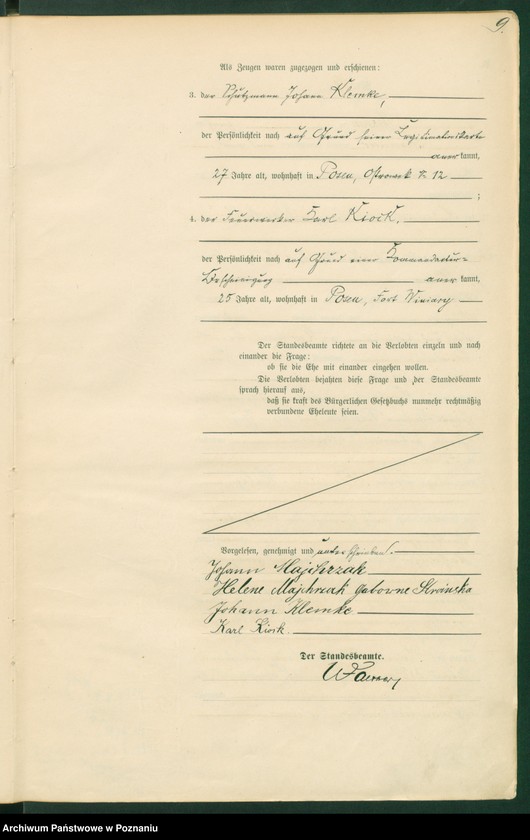 9.
Als Zeugen waren zugezogen und erschienen:
3. der Schutzmann Johann Klemke,
der Persönlichkeit nach auf Grund seiner Legitimationskarte
anerkannt,
27 Jahre alt, wohnhaft in Posen, Ostrowek № 12
;
4. der Feuerwerker Karl Kiock.
der Persönlichkeit nach auf Grund einer Kommandantur-
Bescheinigung anerkannt,
25 Jahre alt, wohnhaft in Posen, Fort Winiary
Der Standesbeamte richtete an die Verlobten einzeln und nach
einander die Frage:
ob sie die Ehe mit einander eingehen wollen.
Die Verlobten bejahten diese Frage und der Standesbeamte
sprach hierauf aus,
daß sie kraft des Bürgerlichen Gesetzbuchs nunmehr rechtmäßig
verbundene Eheleute seien.
Vorgelesen, genehmigt und unterschrieben.
Johann Majchrzak
Helene Majchrzak geborene
Johann Klemke
Karl Kiock.
Der Standesbeamte.
Archiwum Państwowe w Poznaniu